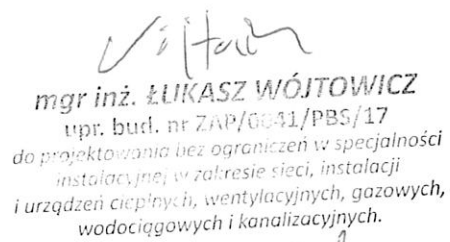 mgr inż. ŁUKASZ WÓJTOWICZ
upr. bud. nr ZAP/0041/PBS/17
do projektowania bez ograniczeń w specjalności
instalacyjnej w zakresie sieci, instalacji
i urządzeń cieplnych, wentylacyjnych, gazowych,
wodociągowych i kanalizacyjnych.